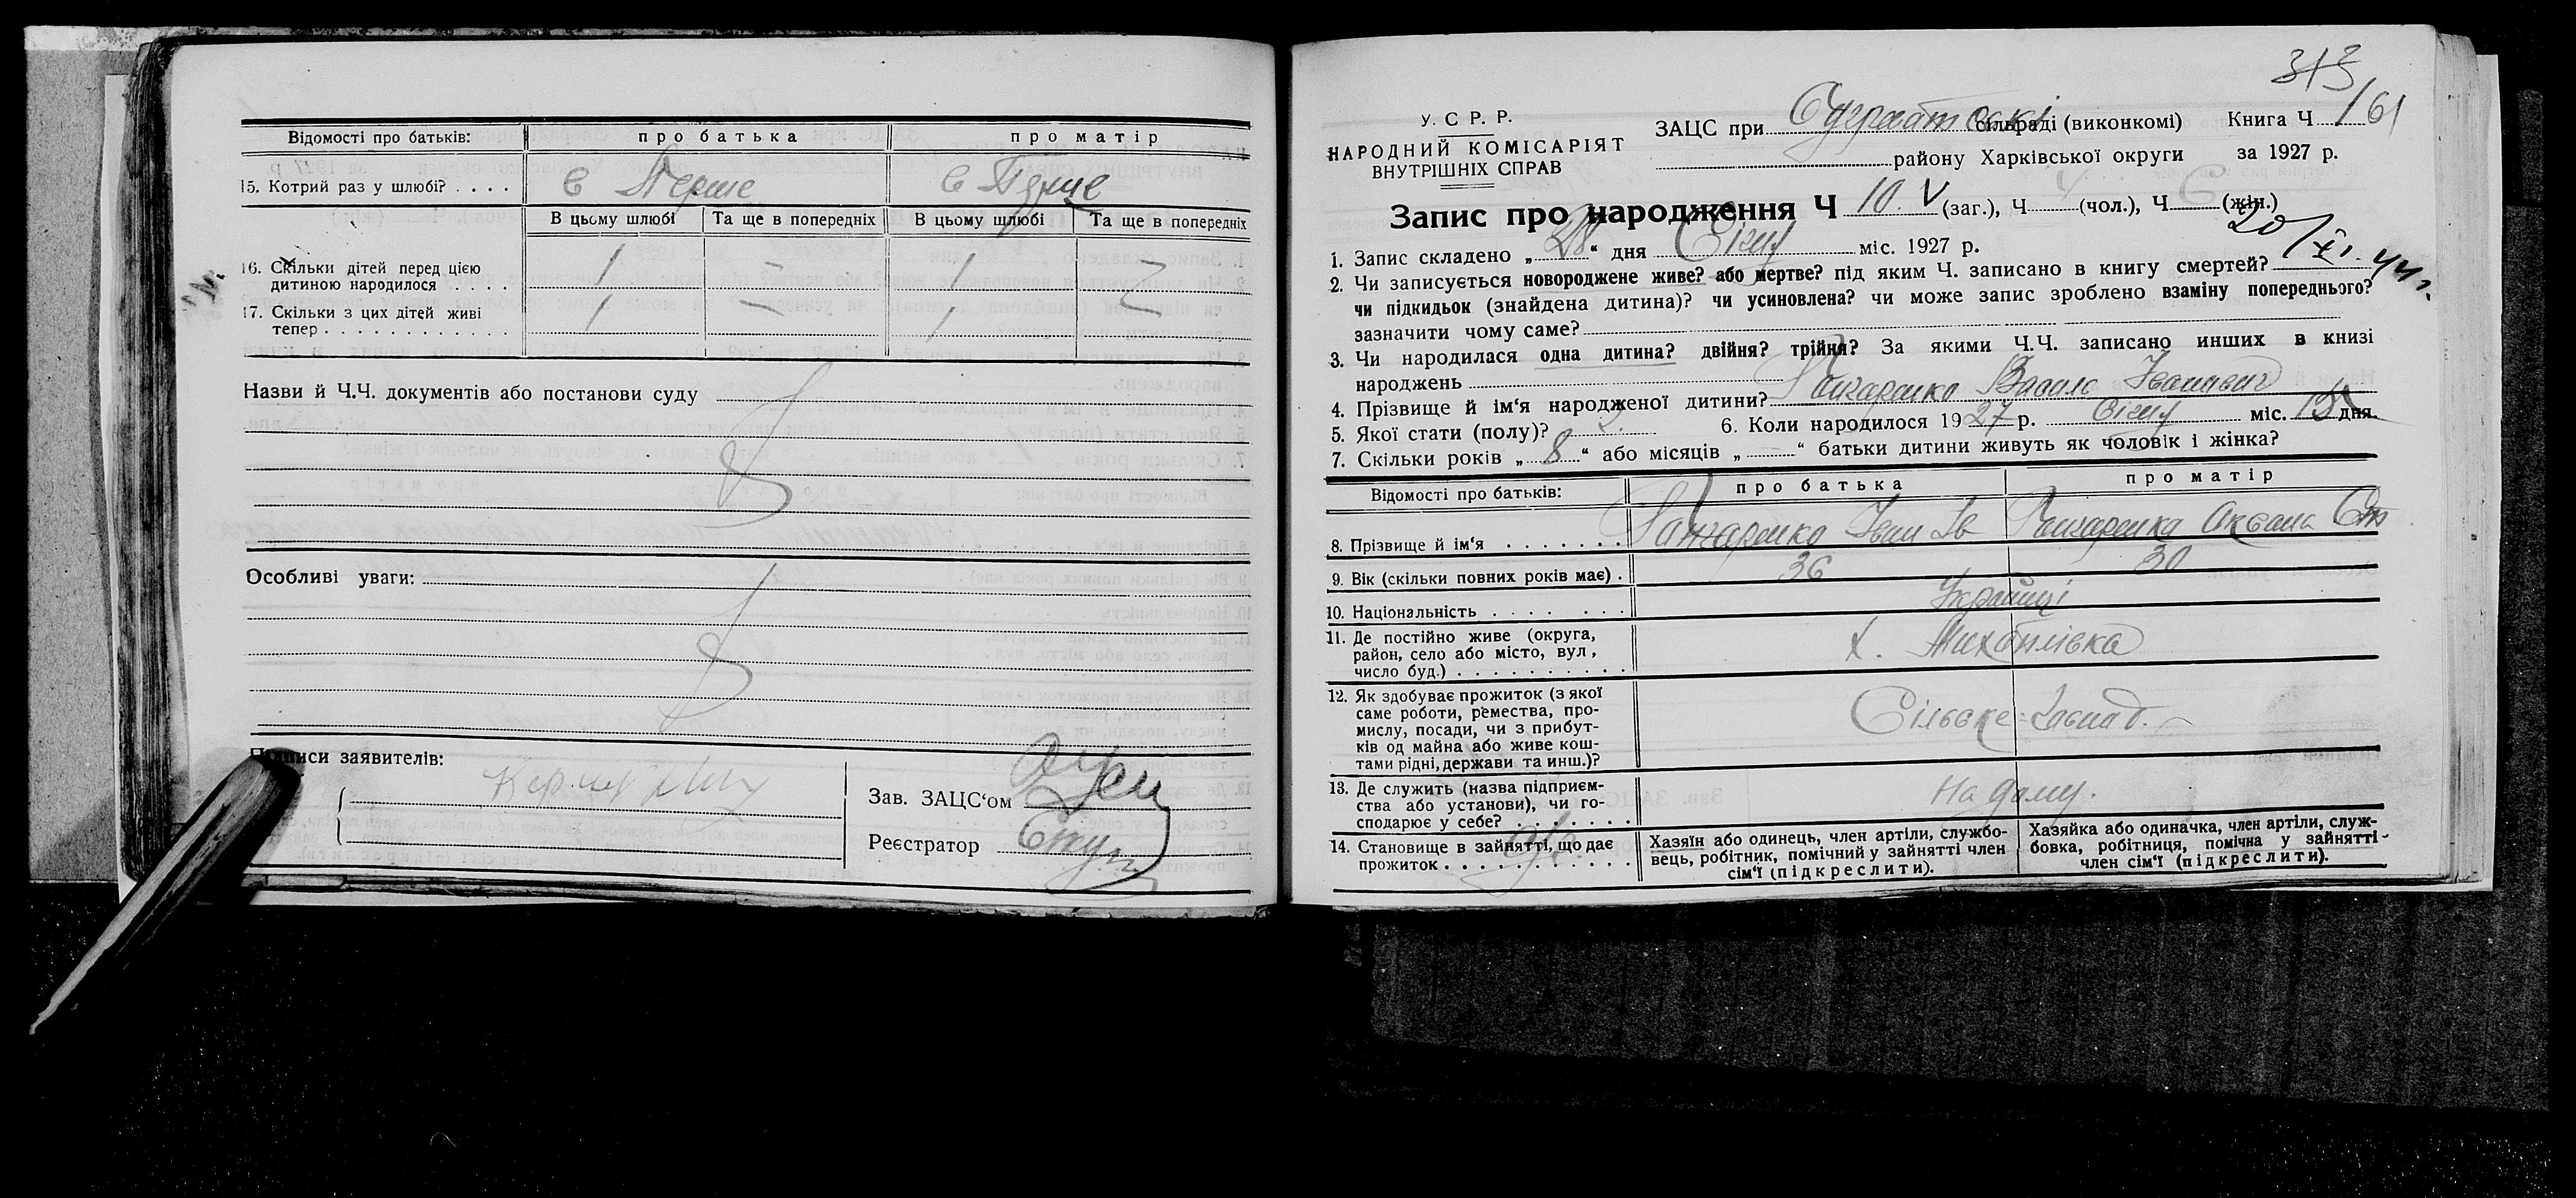 Відомості про батьків: про батька про матір
15. Котрий раз у шлюбі? . . . . в Перше в Перше
В цьому шлюбі Та ще в попередніх В цьому шлюбі Та ще в попередніх
16. Скільки дітей перед цією
дитиною народилося . . . . 1 — 1 —
17. Скільки з цих дітей живі
тепер . . . . . . . . . . . . 1 — 1 —
Назви й Ч.Ч. документів або постанови суду
Особливі уваги:
Підписи заявителів:
Зав. ЗАЦС‘ом
Реєстратор
313
У. С. Р. Р.
НАРОДНИЙ КОМІСАРІЯТ
ВНУТРІШНІХ СПРАВ
ЗАЦС при сільраді (виконкомі) Книга Ч 1/61
району Харківської округи за 1927 р.
Запис про народження Ч 10. V (заг.), Ч (чол.), Ч (жін.)
1. Запис складено „ 28 “ дня Січня міс. 1927 р.
20/XI. 44 р.
2. Чи записується новороджене живе? або мертве? під яким Ч. записано в книгу смертей?
чи підкидьок (знайдена дитина)? чи усиновлена? чи може запис зроблено взаміну попереднього?
зазначити чому саме?
3. Чи народилася одна дитина? двійня? трійня? За якими Ч.Ч. записано инших в книзі
народжень
4. Прізвище й ім‘я народженої дитини? Ганчаренко Иванович
5. Якої стати (полу)? 6. Коли народилося 1927 р. Січня міс. дня.
7. Скільки років „ 8 “ або місяців „ “ батьки дитини живуть як чоловік і жінка?
Відомості про батьків: про батька про матір
8. Прізвище й ім‘я . . . . . . . Ганчаренко Іван Ів Ганчаренка Оксана
9. Вік (скільки повних років має) . 36 30
10. Національність . . . . . . . Українці
11. Де постійно живе (округа,
район, село або місто, вул,
число буд.) . . . . . . . . . . х. Михайлівка
12. Як здобуває прожиток (з якої
саме роботи, ремества, про-
мислу, посади, чи з прибут-
ків од майна або живе кош-
тами рідні, держави та инш.)? Сільске-Госпад.
13. Де служить (назва підприєм-
ства або установи), чи го-
сподарює у себе? . . . . . . . На дому.
14. Становище в зайнятті, що дає
прожиток . . . . . . . . . . .
Хазяїн або одинець, член артіли, службо-
вець, робітник, помічний у зайнятті член
сім‘ї (підкреслити).
Хазяйка або одиначка, член артіли, служ-
бовка, робітниця, помічна у зайнятті
член сім‘ї (підкреслити).